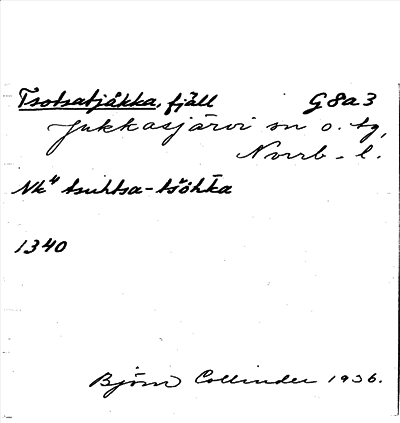 Tsotsatjåkka, fjäll G8a3
Jukkasjärvi sn o. tg,
Norrb. l.
Nk⁴ tsuhtsa-tšǒhka
1340
Björn Collinder 1936.